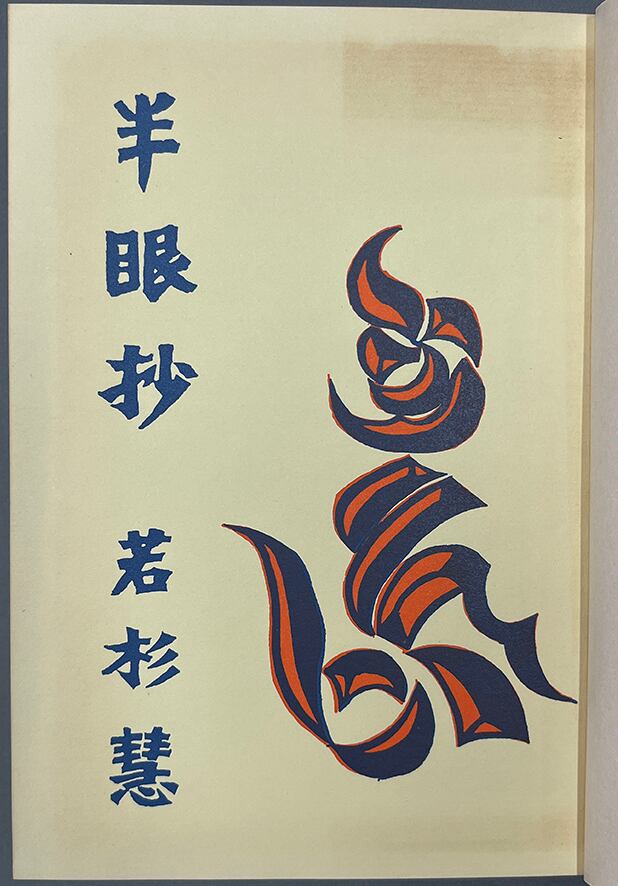 半眼抄
若杉慧